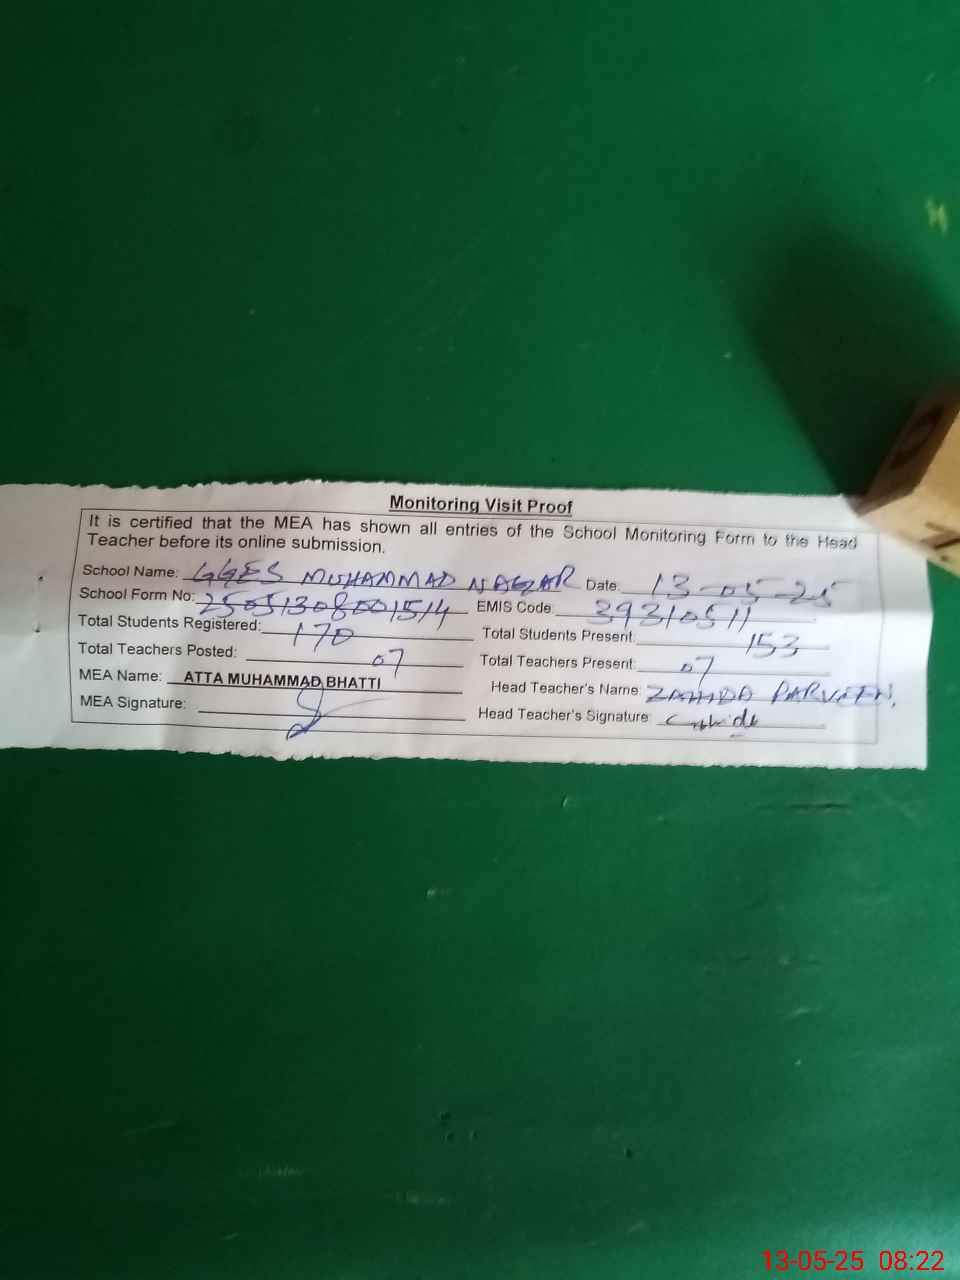 Monitoring Visit Proof
It is certified that the MEA has shown all entries of the School Monitoring Form to the Head
Teacher before its online submission.
School Name: GGES MUHAMMAD NAGAR Date: 13-05-25
School Form No: 25051308001514 EMIS Code: 39310511
Total Students Registered: 170 Total Students Present: 153
Total Teachers Posted: 07 Total Teachers Present: 07
MEA Name: ATTA MUHAMMAD BHATTI Head Teacher's Name: ZAHIDA PARVEEN.
MEA Signature: Head Teacher's Signature:
13-05-25 08:22